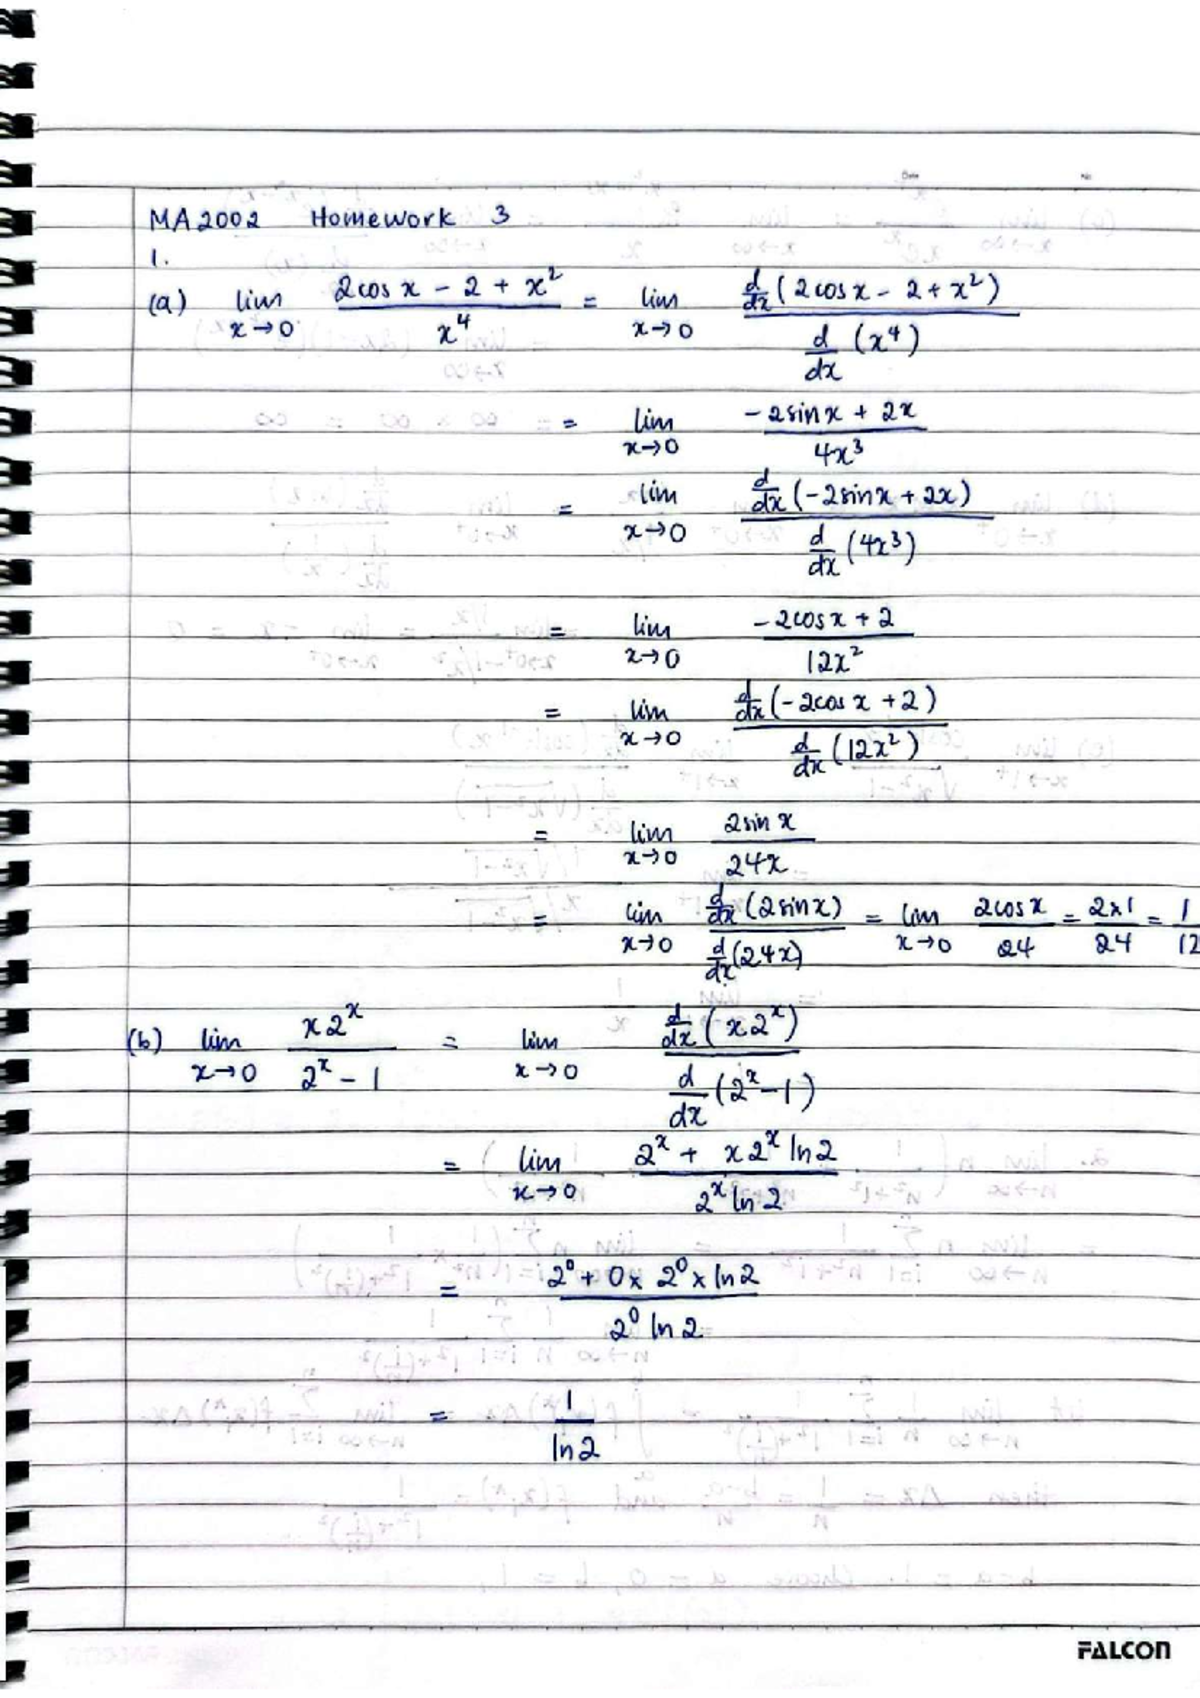 MA2002 Homework 3
1.
(a) lim x→0 (2cos x − 2 + x²)/x⁴ = lim x→0 d/dx(2cos x − 2 + x²) / d/dx(x⁴)
= lim x→0 (−2sin x + 2x)/4x³
= lim x→0 d/dx(−2sin x + 2x) / d/dx(4x³)
= lim x→0 (−2cos x + 2)/12x²
= lim x→0 d/dx(−2cos x + 2) / d/dx(12x²)
= lim x→0 2sin x/24x
= lim x→0 d/dx(2sin x) / d/dx(24x) = lim x→0 2cos x/24 = 2×1/24 = 1/12
(b) lim x→0 x2ˣ/(2ˣ − 1) = lim x→0 d/dx(x2ˣ) / d/dx(2ˣ − 1)
= lim x→0 (2ˣ + x2ˣ ln 2)/(2ˣ ln 2)
= (2⁰ + 0 × 2⁰ × ln 2)/(2⁰ ln 2)
= 1/ln 2
FALCON